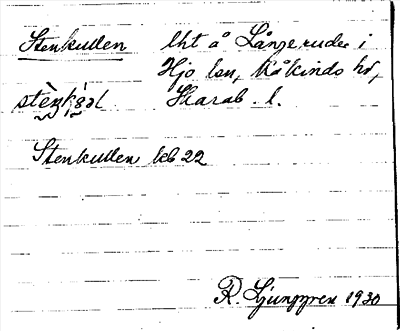 Stenkullen lht å Långerudee i
Hjo lsn, Kåkinds hd,
stèŋkə́l Skarab. l.
Stenkullen leb 22
R. Ljunggren 1930